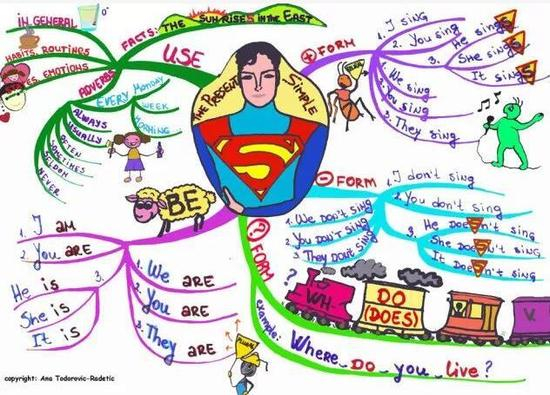 IN GENERAL
HABITS, ROUTINES
EMOTIONS
FACTS: THE SUN RISES IN THE EAST
USE
ADVERBS
EVERY MONDAY
WEEK
MORNING...
ALWAYS
USUALLY
OFTEN
SOMETIMES
SELDOM
NEVER
THE PRESENT
Simple
S
+ FORM
1. I sing
2. You sing
3. He sings
She sings
It sings
1. We sing
2. You sing
3. They sing
PLURAL
- FORM
I don't sing
You don't sing
He doesn't sing
She doesn't sing
It doesn't sing
1. We DON'T sing
2. You DON'T sing
3. They don't sing
BE
1. I AM
2. You ARE
3. He is
She is
It is
1. We ARE
2. You ARE
3. They ARE
PLURAL
? FORM
?
WH-
DO
(DOES)
S
V.
example: Where DO you live?
copyright: Ana Todorovic-Radetic